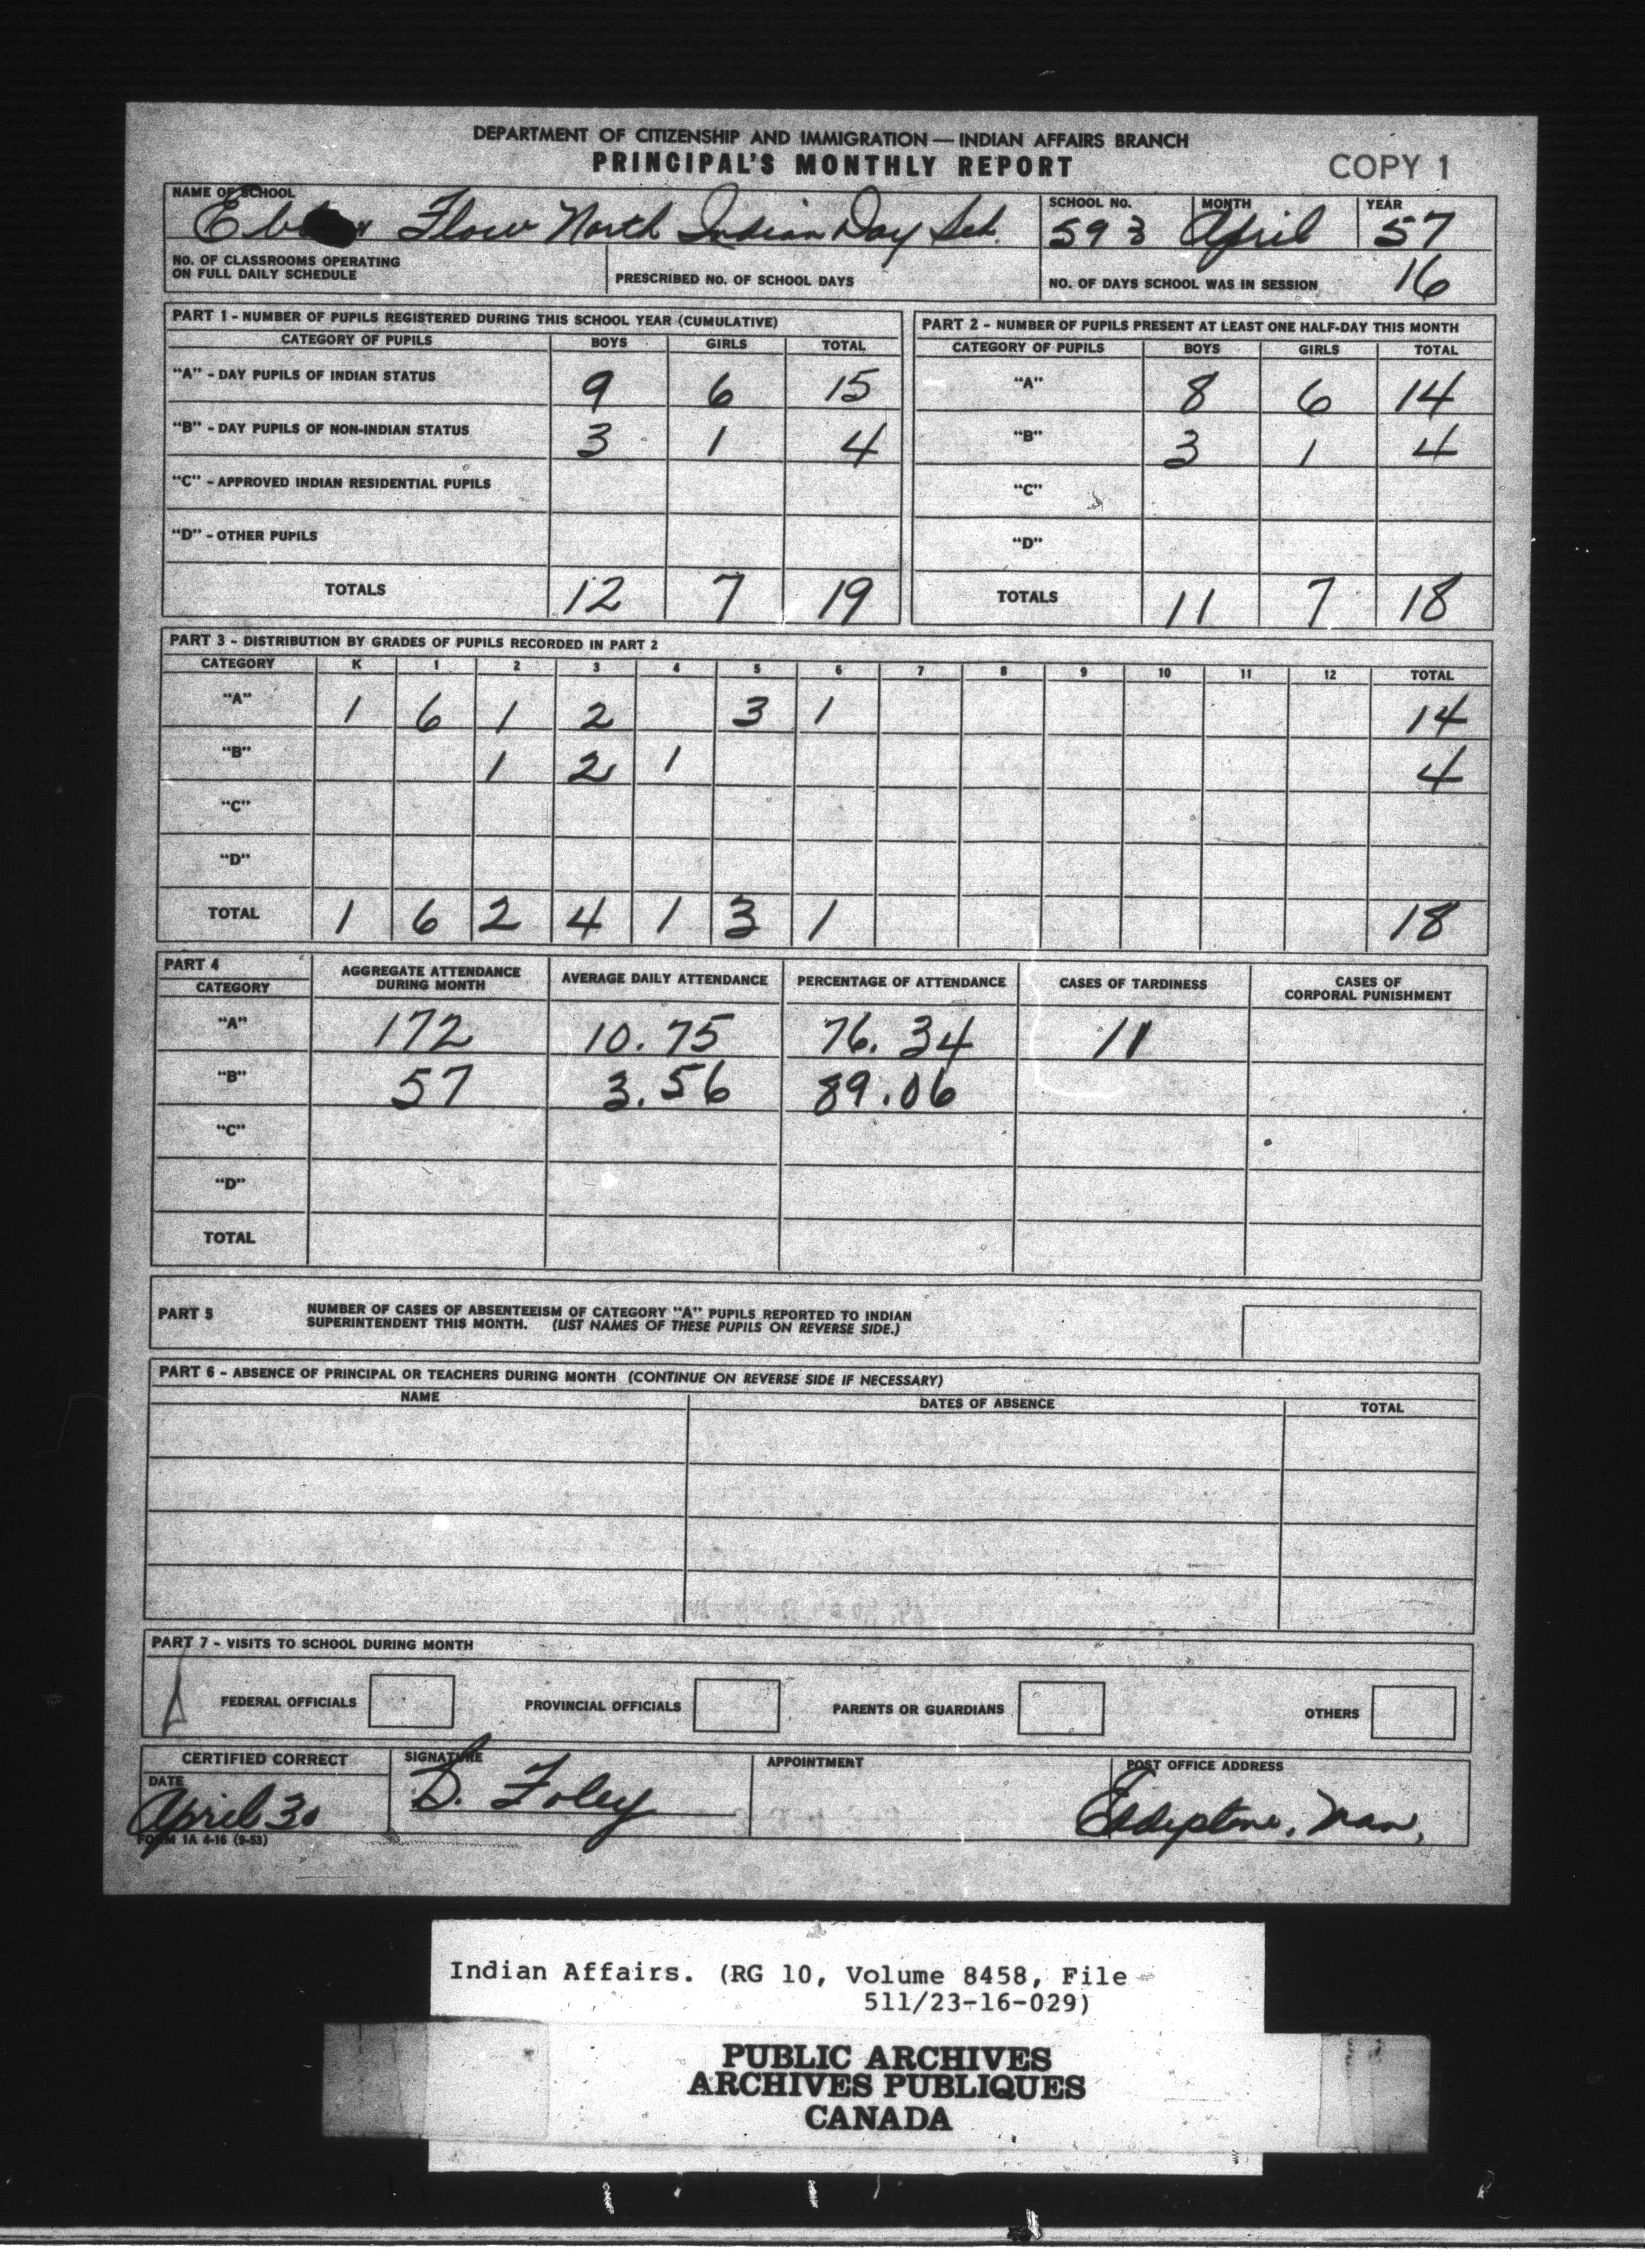 DEPARTMENT OF CITIZENSHIP AND IMMIGRATION — INDIAN AFFAIRS BRANCH
PRINCIPAL'S MONTHLY REPORT COPY 1
NAME OF SCHOOL SCHOOL NO. MONTH YEAR
Flow North Indian Day Sch. 593 April 57
NO. OF CLASSROOMS OPERATING ON FULL DAILY SCHEDULE PRESCRIBED NO. OF SCHOOL DAYS NO. OF DAYS SCHOOL WAS IN SESSION 16
PART 1 - NUMBER OF PUPILS REGISTERED DURING THIS SCHOOL YEAR (CUMULATIVE)
CATEGORY OF PUPILS BOYS GIRLS TOTAL
"A" - DAY PUPILS OF INDIAN STATUS 9 6 15
"B" - DAY PUPILS OF NON-INDIAN STATUS 3 1 4
"C" - APPROVED INDIAN RESIDENTIAL PUPILS
"D" - OTHER PUPILS
TOTALS 12 7 19
PART 2 - NUMBER OF PUPILS PRESENT AT LEAST ONE HALF-DAY THIS MONTH
CATEGORY OF PUPILS BOYS GIRLS TOTAL
"A" 8 6 14
"B" 3 1 4
"C"
"D"
TOTALS 11 7 18
PART 3 - DISTRIBUTION BY GRADES OF PUPILS RECORDED IN PART 2
CATEGORY K 1 2 3 4 5 6 7 8 9 10 11 12 TOTAL
"A" 1 6 1 2 3 1 14
"B" 1 2 1 4
"C"
"D"
TOTAL 1 6 2 4 1 3 1 18
PART 4
CATEGORY AGGREGATE ATTENDANCE DURING MONTH AVERAGE DAILY ATTENDANCE PERCENTAGE OF ATTENDANCE CASES OF TARDINESS CASES OF CORPORAL PUNISHMENT
"A" 172 10.75 76.34 11
"B" 57 3.56 89.06
"C"
"D"
TOTAL
PART 5 NUMBER OF CASES OF ABSENTEEISM OF CATEGORY "A" PUPILS REPORTED TO INDIAN
SUPERINTENDENT THIS MONTH. (LIST NAMES OF THESE PUPILS ON REVERSE SIDE.)
PART 6 - ABSENCE OF PRINCIPAL OR TEACHERS DURING MONTH (CONTINUE ON REVERSE SIDE IF NECESSARY)
NAME DATES OF ABSENCE TOTAL
PART 7 - VISITS TO SCHOOL DURING MONTH
FEDERAL OFFICIALS PROVINCIAL OFFICIALS PARENTS OR GUARDIANS OTHERS
CERTIFIED CORRECT SIGNATURE APPOINTMENT POST OFFICE ADDRESS
DATE
April 30 D. Foley Eddystone, Man.
FORM 1A 4-16 (9-53)
Indian Affairs. (RG 10, Volume 8458, File
511/23-16-029)
PUBLIC ARCHIVES
ARCHIVES PUBLIQUES
CANADA